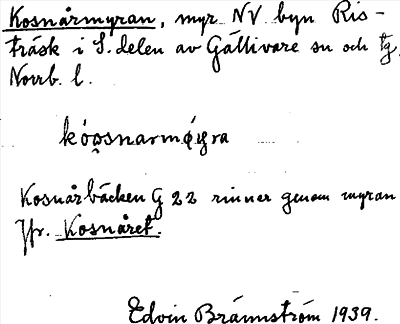 Kosnårmyran, myr NV byn Ris-
träsk i S. delen av Gällivare sn och tg,
Norrb. l.
kó̱o̱snarmǿyra
Kosnårbäcken G 22 rinner genom myran
Jfr. Kosnåret.
Edvin Brännström 1939.